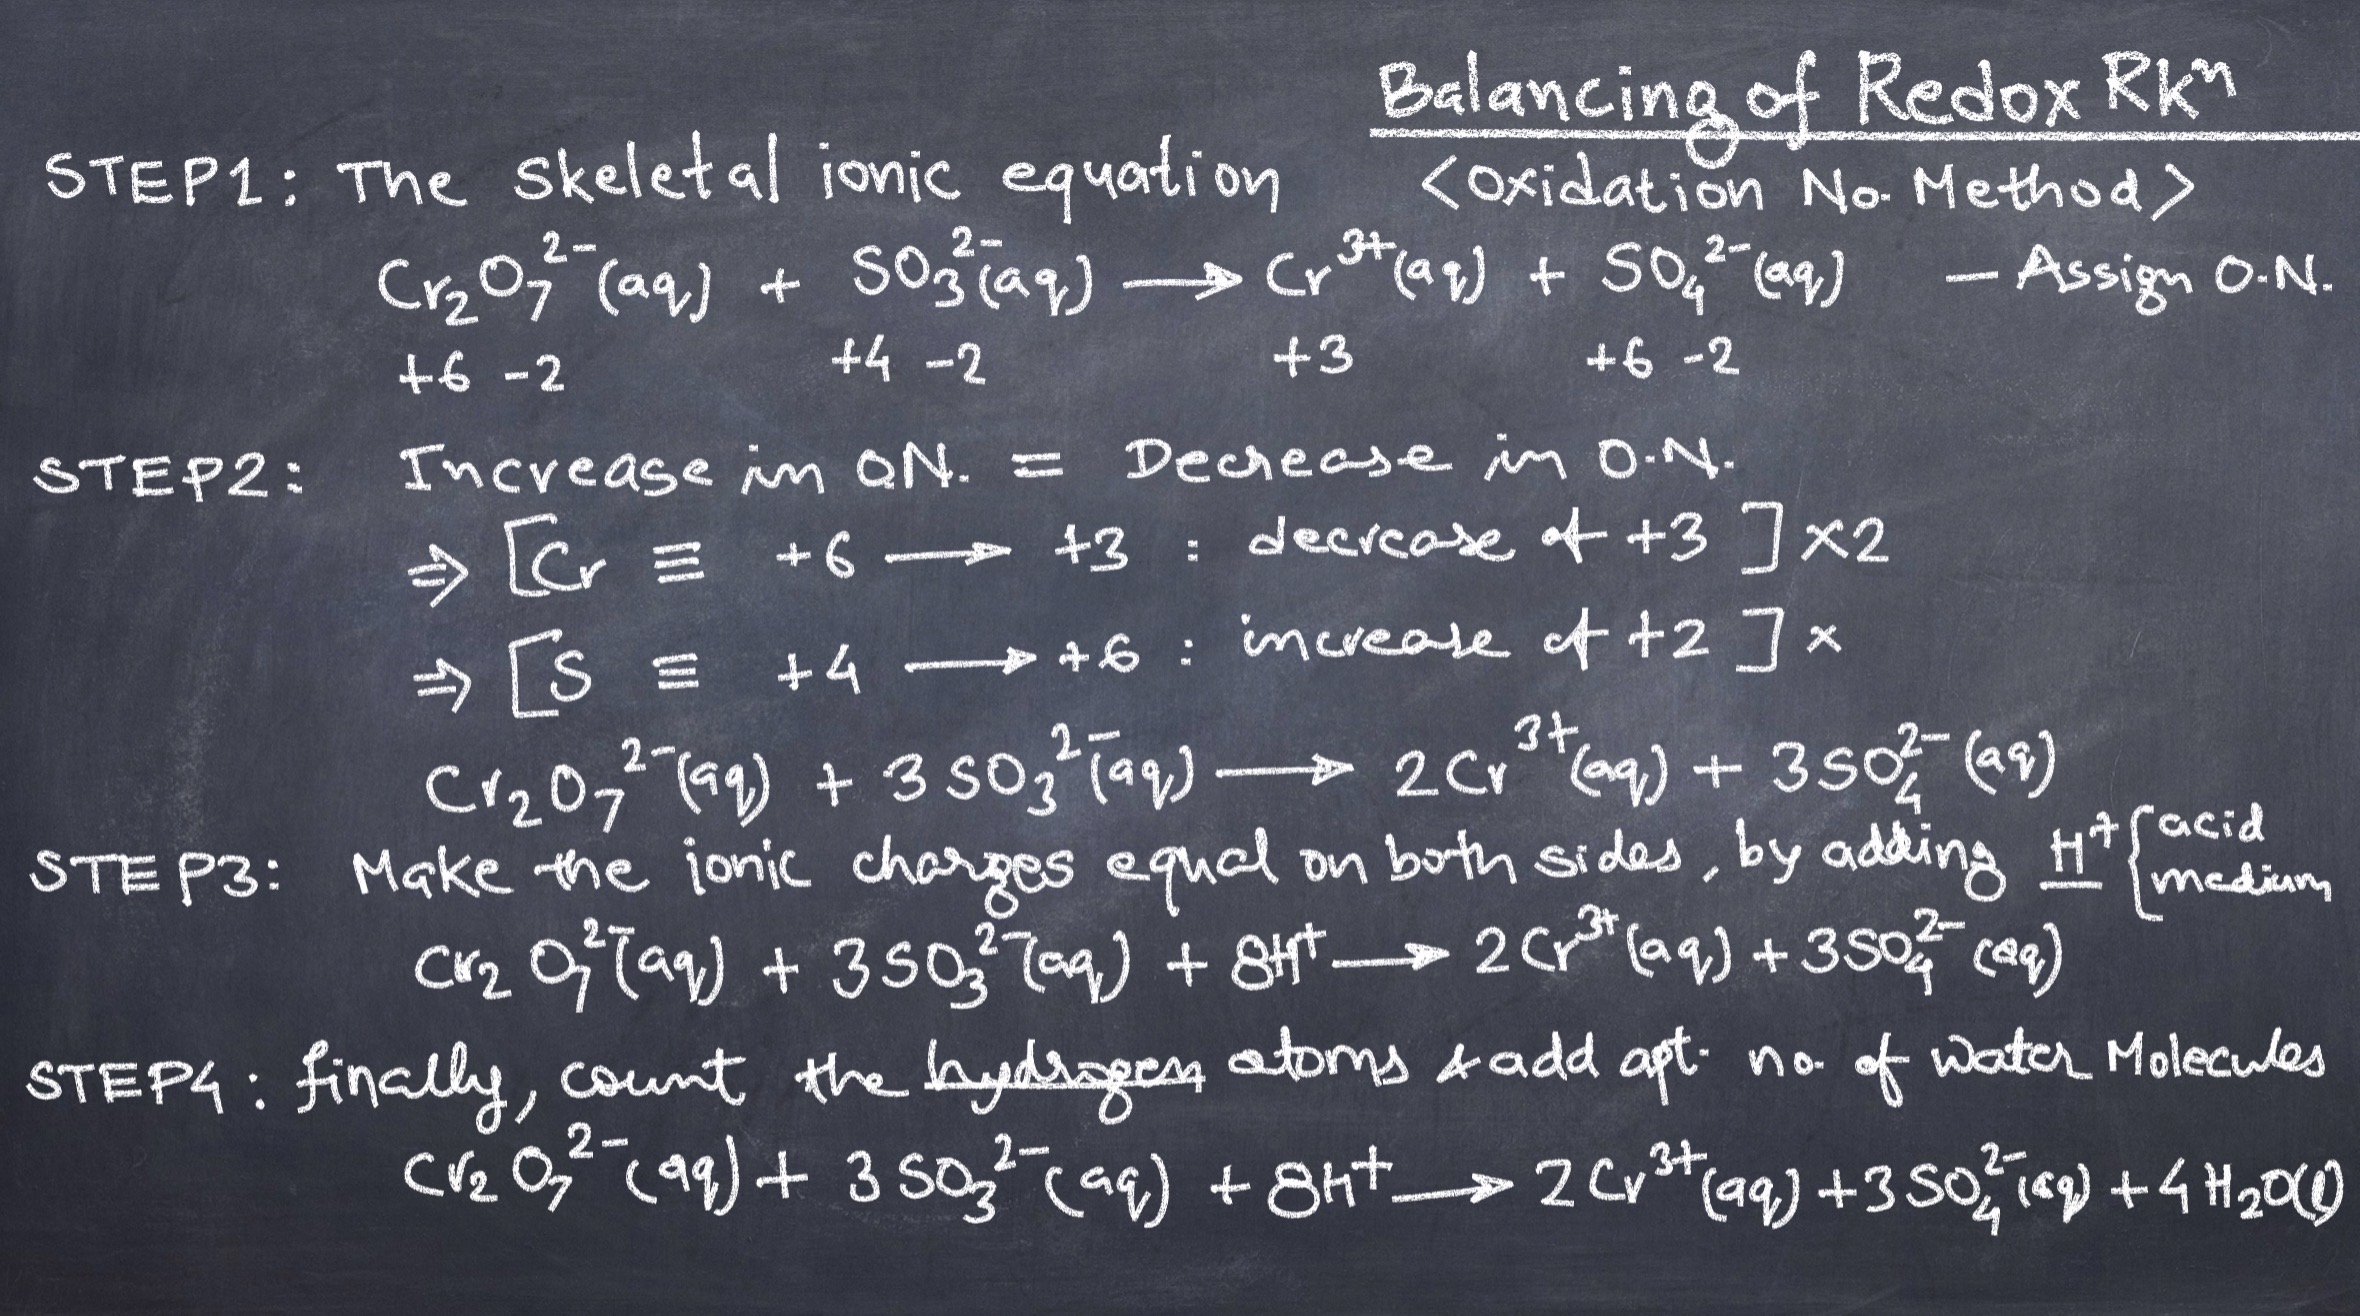 Balancing of Redox Rxⁿ
<Oxidation No. Method>
STEP1: The skeletal ionic equation
Cr₂O₇²⁻(aq) + SO₃²⁻(aq) ⟶ Cr³⁺(aq) + SO₄²⁻(aq) – Assign O.N.
+6 -2 +4 -2 +3 +6 -2
STEP2: Increase in O.N. = Decrease in O.N.
⇒ [Cr ≡ +6 ⟶ +3 : decrease of +3 ] ×2
⇒ [S ≡ +4 ⟶ +6 : increase of +2 ] ×
Cr₂O₇²⁻(aq) + 3SO₃²⁻(aq) ⟶ 2Cr³⁺(aq) + 3SO₄²⁻(aq)
STEP3: Make the ionic charges equal on both sides, by adding H⁺ {acid medium
Cr₂O₇²⁻(aq) + 3SO₃²⁻(aq) + 8H⁺ ⟶ 2Cr³⁺(aq) + 3SO₄²⁻(aq)
STEP4: finally, count the hydrogen atoms & add apt. no. of water Molecules
Cr₂O₇²⁻(aq) + 3SO₃²⁻(aq) + 8H⁺ ⟶ 2Cr³⁺(aq) + 3SO₄²⁻(aq) + 4H₂O(l)